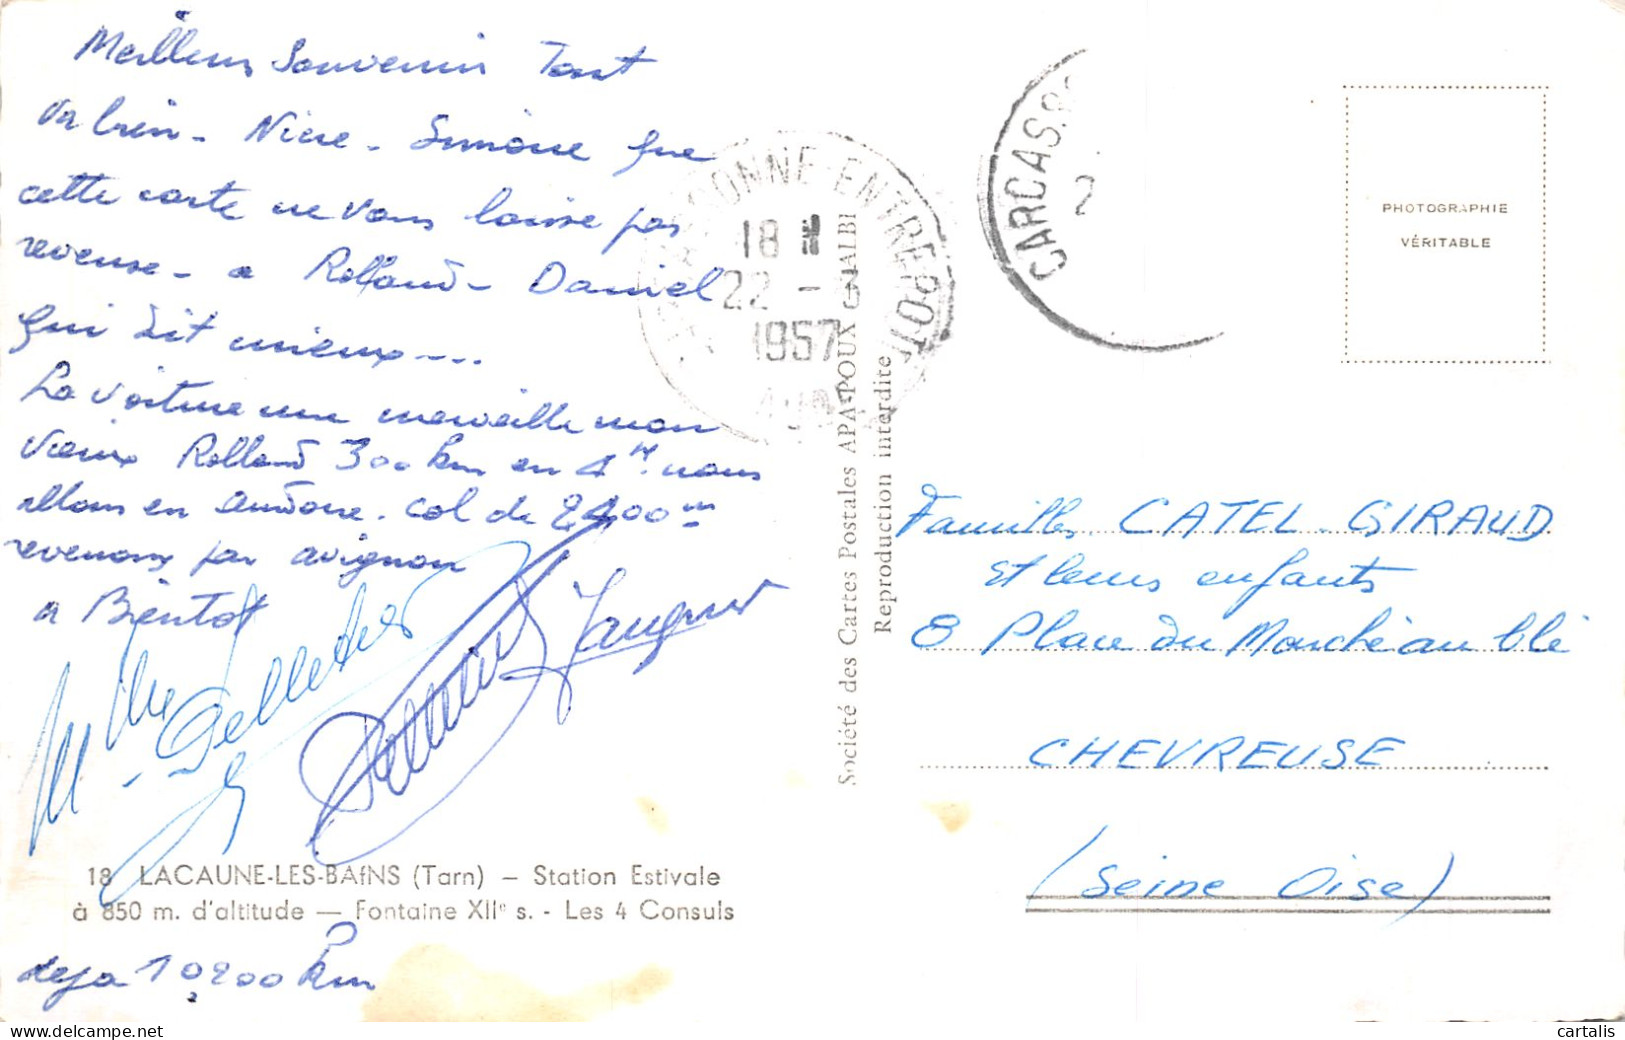 Meilleur Souvenir Tout
va bien - Nicie - Simone que
cette carte ne vous laisse pas
reveuse - a Rolland - Daniel
qui dit mieux ---
La voiture une merveille mon
vieux Rolland 300 km en 4 H. nous
allons en Andore. col de 2400 m
revenons par avignon
a Bientot
18 LACAUNE-LES-BAINS (Tarn) — Station Estivale
à 850 m. d'altitude — Fontaine XIIe s. - Les 4 Consuls
deja 10200 km
CARCASSONNE-ENTREPOT
18
22 - 8
1957
AUDE
Société des Cartes Postales APA-POUX - ALBI
Reproduction interdite
CARCAS
2
PHOTOGRAPHIE
VÉRITABLE
Familles CATEL-GIRAUD
et leurs enfants
8 Place du Marché au blé
CHEVREUSE
(Seine Oise)
cartalis